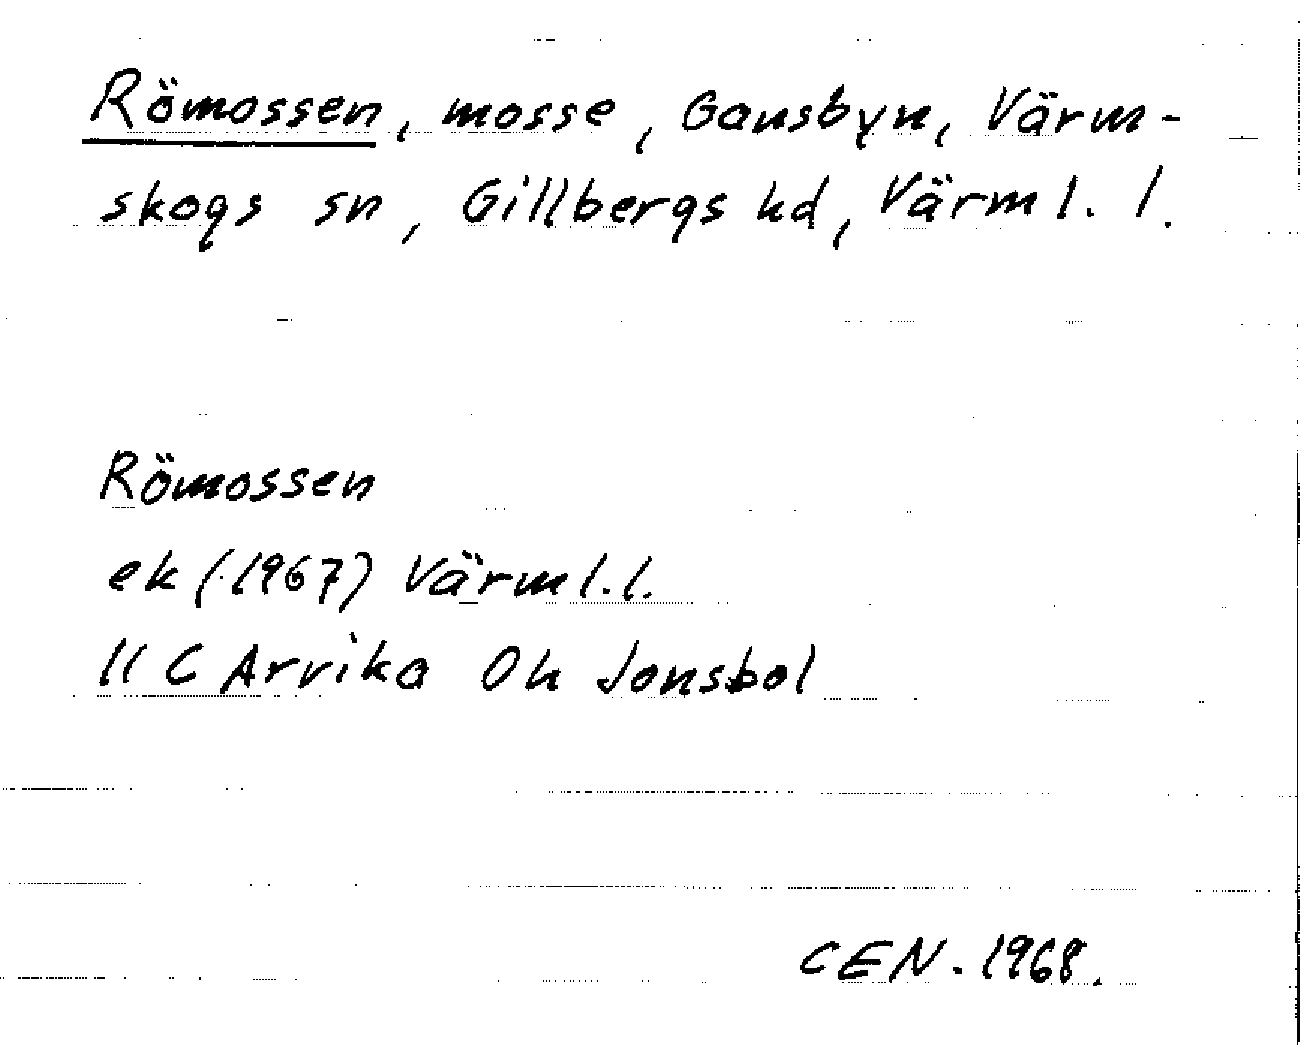 Römossen, mosse, Gansbyn, Värm-
skogs sn, Gillbergs hd, Värml. l.
Römossen
ek (1967) Värml.l.
11 C Arvika 0h Jonsbol
CEN. 1968.